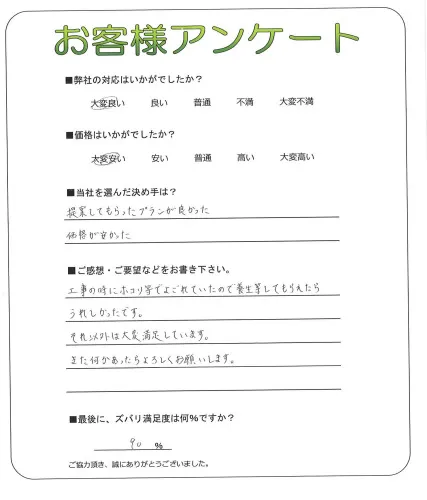 お客様アンケート
■弊社の対応はいかがでしたか？
大変良い 良い 普通 不満 大変不満
■価格はいかがでしたか？
大変安い 安い 普通 高い 大変高い
■当社を選んだ決め手は？
提案してもらったプランが良かった
価格が安かった
■ご感想・ご要望などをお書き下さい。
工事の時にホコリ等でよごれていたので養生等してもらえたら
うれしかったです。
それ以外は大変満足しています。
また何かあったらよろしくお願いします。
■最後に、ズバリ満足度は何%ですか？
90 %
ご協力頂き、誠にありがとうございました。